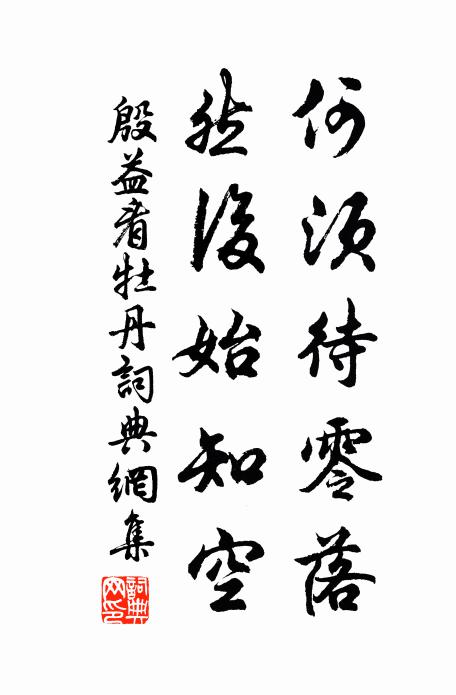 何須待零落
然後始知空
殷益看牡丹詞典網集
詞典網印